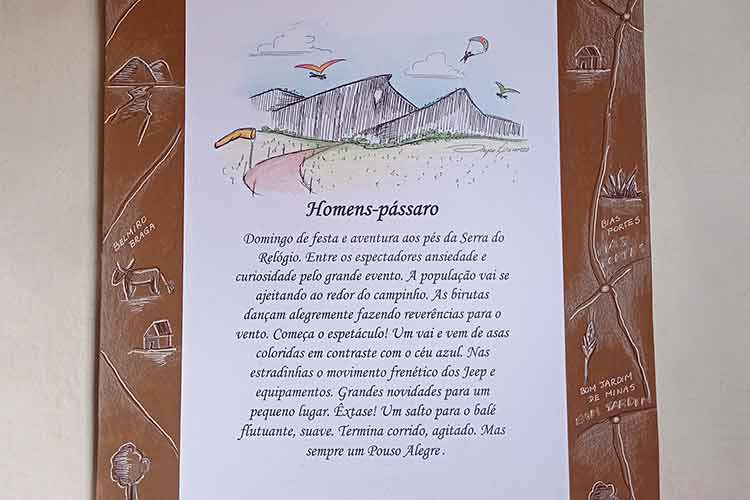 Homens-pássaro
Domingo de festa e aventura aos pés da Serra do
Relógio. Entre os espectadores ansiedade e
curiosidade pelo grande evento. A população vai se
ajeitando ao redor do campinho. As birutas
dançam alegremente fazendo reverências para o
vento. Começa o espetáculo! Um vai e vem de asas
coloridas em contraste com o céu azul. Nas
estradinhas o movimento frenético dos Jeep e
equipamentos. Grandes novidades para um
pequeno lugar. Êxtase! Um salto para o balé
flutuante, suave. Termina corrido, agitado. Mas
sempre um Pouso Alegre.
BELMIRO
BRAGA
BIAS
FORTES
BOM JARDIM
DE MINAS
BOM JARDIM